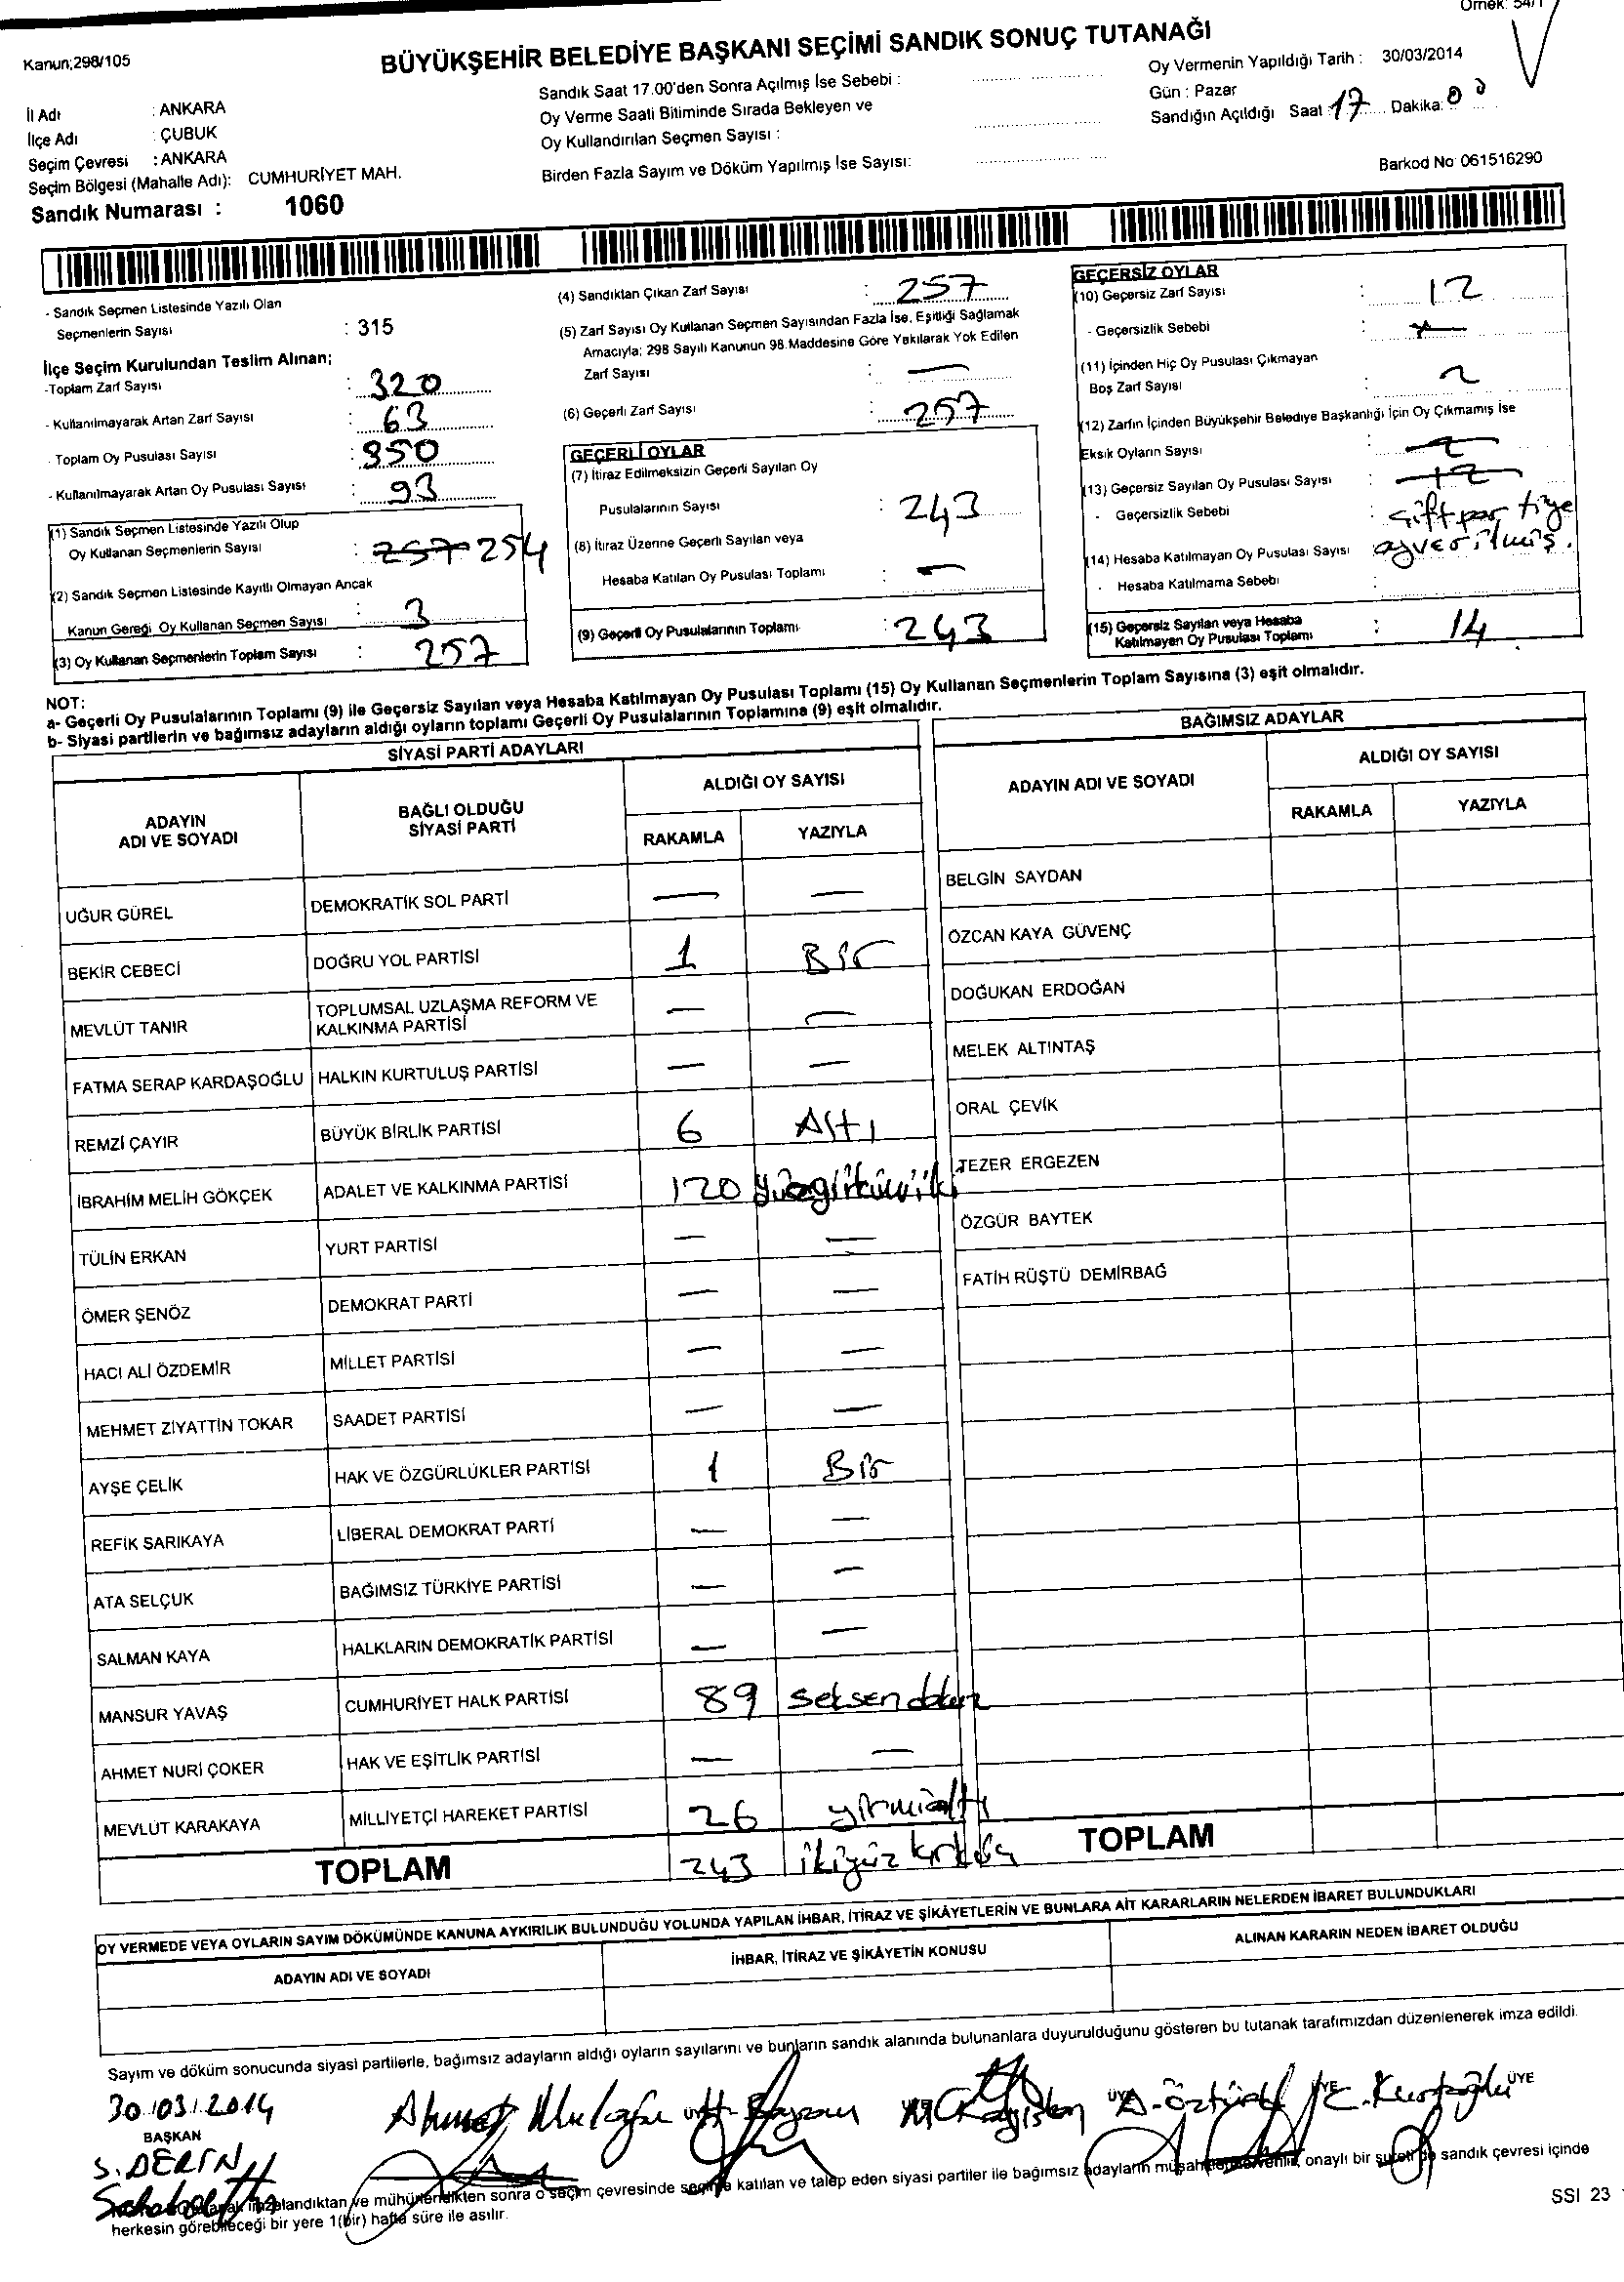 Örnek: 54/1
Kanun;298/105
BÜYÜKŞEHİR BELEDİYE BAŞKANI SEÇİMİ SANDIK SONUÇ TUTANAĞI
İl Adı : ANKARA
İlçe Adı : ÇUBUK
Seçim Çevresi : ANKARA
Seçim Bölgesi (Mahalle Adı): CUMHURİYET MAH.
Sandık Numarası : 1060
Sandık Saat 17.00'den Sonra Açılmış İse Sebebi :
Oy Verme Saati Bitiminde Sırada Bekleyen ve
Oy Kullandırılan Seçmen Sayısı :
Birden Fazla Sayım ve Döküm Yapılmış İse Sayısı:
Oy Vermenin Yapıldığı Tarih : 30/03/2014
Gün : Pazar
Sandığın Açıldığı Saat : 17 Dakika: 00
Barkod No: 061516290
- Sandık Seçmen Listesinde Yazılı Olan
Seçmenlerin Sayısı : 315
İlçe Seçim Kurulundan Teslim Alınan;
-Toplam Zarf Sayısı : 320
- Kullanılmayarak Artan Zarf Sayısı : 63
- Toplam Oy Pusulası Sayısı : 350
- Kullanılmayarak Artan Oy Pusulası Sayısı : 93
(1) Sandık Seçmen Listesinde Yazılı Olup
Oy Kullanan Seçmenlerin Sayısı : 257 254
(2) Sandık Seçmen Listesinde Kayıtlı Olmayan Ancak
Kanun Gereği Oy Kullanan Seçmen Sayısı : 3
(3) Oy Kullanan Seçmenlerin Toplam Sayısı : 257
(4) Sandıktan Çıkan Zarf Sayısı : 257
(5) Zarf Sayısı Oy Kullanan Seçmen Sayısından Fazla İse, Eşitliği Sağlamak
Amacıyla; 298 Sayılı Kanunun 98.Maddesine Göre Yakılarak Yok Edilen
Zarf Sayısı : —
(6) Geçerli Zarf Sayısı : 257
GEÇERLİ OYLAR
(7) İtiraz Edilmeksizin Geçerli Sayılan Oy
Pusulalarının Sayısı : 243
(8) İtiraz Üzerine Geçerli Sayılan veya
Hesaba Katılan Oy Pusulası Toplamı : —
(9) Geçerli Oy Pusulalarının Toplamı : 243
GEÇERSİZ OYLAR
(10) Geçersiz Zarf Sayısı : 12
- Geçersizlik Sebebi :
(11) İçinden Hiç Oy Pusulası Çıkmayan
Boş Zarf Sayısı : 2
(12) Zarfın İçinden Büyükşehir Belediye Başkanlığı İçin Oy Çıkmamış İse
Eksik Oyların Sayısı : 2
(13) Geçersiz Sayılan Oy Pusulası Sayısı : 12
- Geçersizlik Sebebi : çift partiye
(14) Hesaba Katılmayan Oy Pusulası Sayısı oy verilmiş.
- Hesaba Katılmama Sebebi :
(15) Geçersiz Sayılan veya Hesaba
Katılmayan Oy Pusulası Toplamı : 14
NOT:
a- Geçerli Oy Pusulalarının Toplamı (9) ile Geçersiz Sayılan veya Hesaba Katılmayan Oy Pusulası Toplamı (15) Oy Kullanan Seçmenlerin Toplam Sayısına (3) eşit olmalıdır.
b- Siyasi partilerin ve bağımsız adayların aldığı oyların toplamı Geçerli Oy Pusulalarının Toplamına (9) eşit olmalıdır.
SİYASİ PARTİ ADAYLARI
ADAYIN ADI VE SOYADI
BAĞLI OLDUĞU SİYASİ PARTİ
ALDIĞI OY SAYISI
RAKAMLA YAZIYLA
UĞUR GÜREL DEMOKRATİK SOL PARTİ — —
BEKİR CEBECİ DOĞRU YOL PARTİSİ 1 Bir
MEVLÜT TANIR TOPLUMSAL UZLAŞMA REFORM VE KALKINMA PARTİSİ — —
FATMA SERAP KARDAŞOĞLU HALKIN KURTULUŞ PARTİSİ — —
REMZİ ÇAYIR BÜYÜK BİRLİK PARTİSİ 6 Altı
İBRAHİM MELİH GÖKÇEK ADALET VE KALKINMA PARTİSİ 120
TÜLİN ERKAN YURT PARTİSİ — —
ÖMER ŞENÖZ DEMOKRAT PARTİ — —
HACI ALİ ÖZDEMİR MİLLET PARTİSİ — —
MEHMET ZİYATTİN TOKAR SAADET PARTİSİ — —
AYŞE ÇELİK HAK VE ÖZGÜRLÜKLER PARTİSİ 1 Bir
REFİK SARIKAYA LİBERAL DEMOKRAT PARTİ — —
ATA SELÇUK BAĞIMSIZ TÜRKİYE PARTİSİ — —
SALMAN KAYA HALKLARIN DEMOKRATİK PARTİSİ — —
MANSUR YAVAŞ CUMHURİYET HALK PARTİSİ 89 seksen dokuz
AHMET NURİ ÇOKER HAK VE EŞİTLİK PARTİSİ — —
MEVLÜT KARAKAYA MİLLİYETÇİ HAREKET PARTİSİ 26 yirmialtı
TOPLAM 243 ikiyüz
BAĞIMSIZ ADAYLAR
ADAYIN ADI VE SOYADI
ALDIĞI OY SAYISI
RAKAMLA YAZIYLA
BELGİN SAYDAN
ÖZCAN KAYA GÜVENÇ
DOĞUKAN ERDOĞAN
MELEK ALTINTAŞ
ORAL ÇEVİK
TEZER ERGEZEN
ÖZGÜR BAYTEK
FATİH RÜŞTÜ DEMİRBAĞ
TOPLAM
OY VERMEDE VEYA OYLARIN SAYIM DÖKÜMÜNDE KANUNA AYKIRILIK BULUNDUĞU YOLUNDA YAPILAN İHBAR, İTİRAZ VE ŞİKÂYETLERİN VE BUNLARA AİT KARARLARIN NELERDEN İBARET BULUNDUKLARI
ADAYIN ADI VE SOYADI İHBAR, İTİRAZ VE ŞİKÂYETİN KONUSU ALINAN KARARIN NEDEN İBARET OLDUĞU
Sayım ve döküm sonucunda siyasi partilerle, bağımsız adayların aldığı oyların sayılarını ve bunların sandık alanında bulunanlara duyurulduğunu gösteren bu tutanak tarafımızdan düzenlenerek imza edildi.
30.03.2014
BAŞKAN
S. DERİN
Ahmet
A. Öztürk ÜYE
ÜYE
imzalandıktan ve mühürlendikten sonra o seçim çevresinde seçime katılan ve talep eden siyasi partiler ile bağımsız adayların onaylı bir sureti de sandık çevresi içinde
herkesin görebileceği bir yere 1(bir) hafta süre ile asılır.
SSI 23